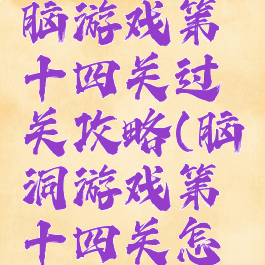 脑游戏第
十四关过
关攻略(脑
洞游戏第
十四关怎